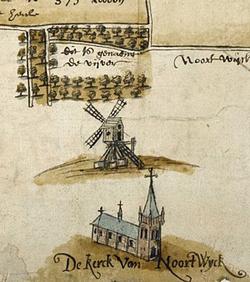 dit is genaemt
de vijver
Noort Wijck
De Kerck Van Noort Wyck